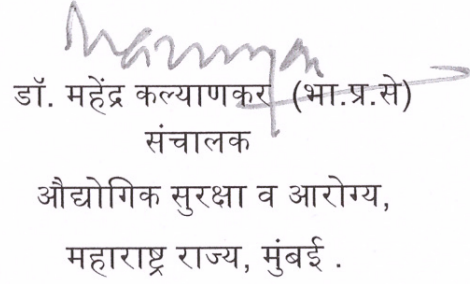 डॉ. महेंद्र कल्याणकर (भा.प्र.से)
संचालक
औद्योगिक सुरक्षा व आरोग्य,
महाराष्ट्र राज्य, मुंबई .